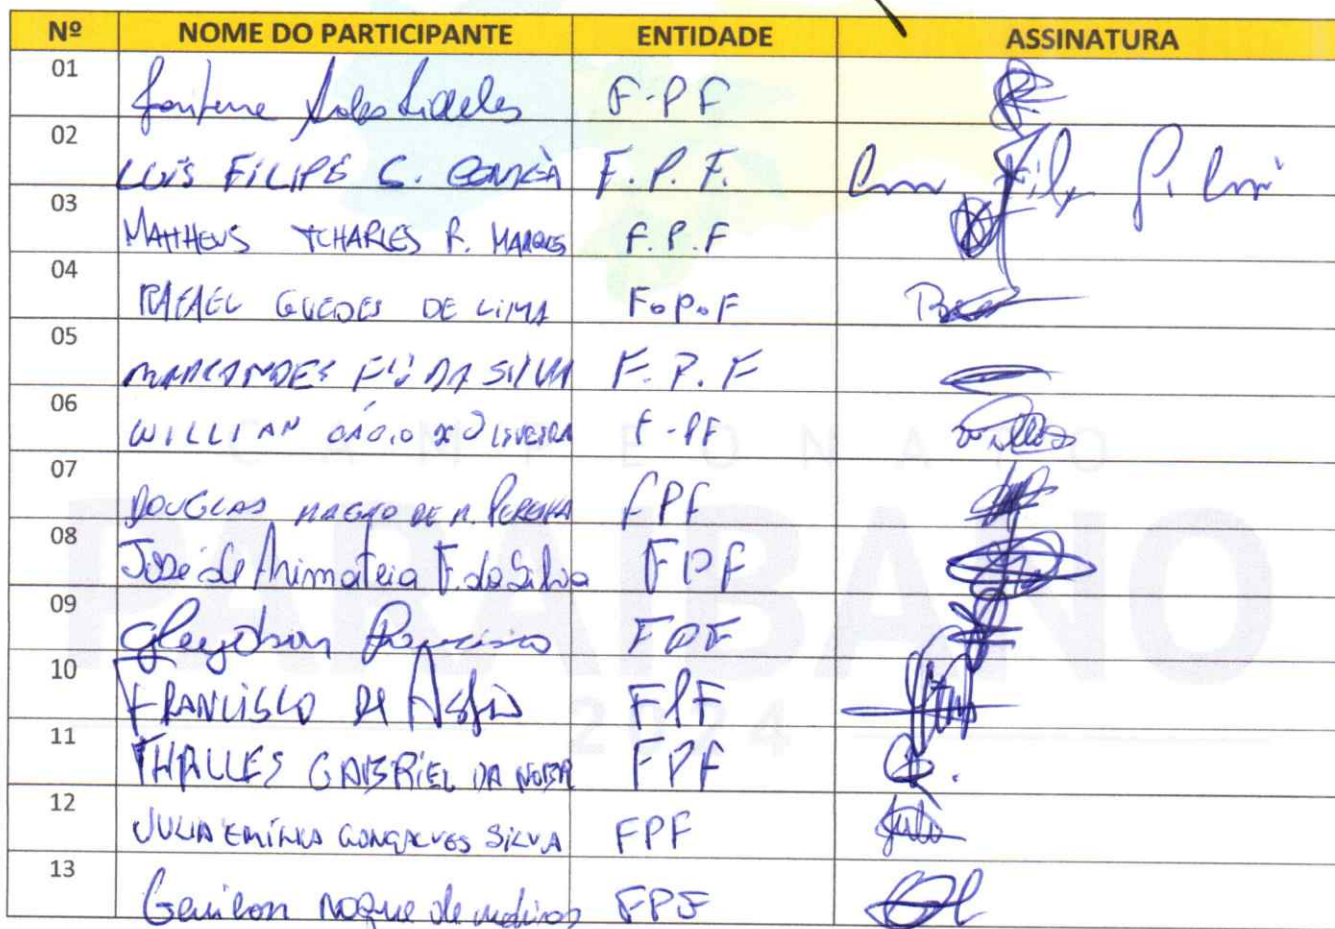 Nº NOME DO PARTICIPANTE ENTIDADE ASSINATURA
01 F-PF
02 LUÍS FILIPE C. F.P.F.
03 MATTHEUS TCHARLES R. MARQUES F.P.F
04 RAFAEL GUEDES DE LIMA F.P.F
05 DA SILVA F.P.F
06 WILLIAN OLIVEIRA F-PF
07 DOUGLAS MAGNO DE M. PEREIRA FPF
08 José de Arimateia F. da Silva FPF
09 Gleydson Francisco FPF
10 FRANCISCO DE Assis FPF
11 THALLES GABRIEL DA FPF
12 JULIA EMÍLIA GONÇALVES SILVA FPF
13 Genilson Roque de medeiros FPF
CAMPEONATO
PARAIBANO
2024